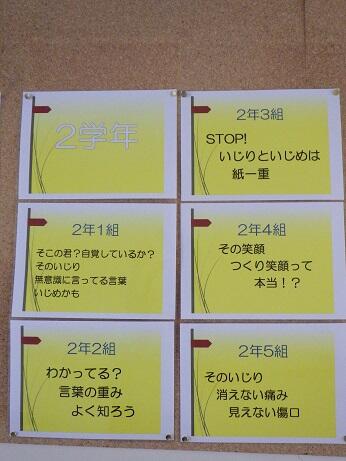 2学年
2年1組
そこの君？自覚しているか？
そのいじり
無意識に言ってる言葉
いじめかも
2年2組
わかってる？
言葉の重み
よく知ろう
2年3組
STOP!
いじりといじめは
紙一重
2年4組
その笑顔
つくり笑顔って
本当！？
2年5組
そのいじり
消えない痛み
見えない傷口